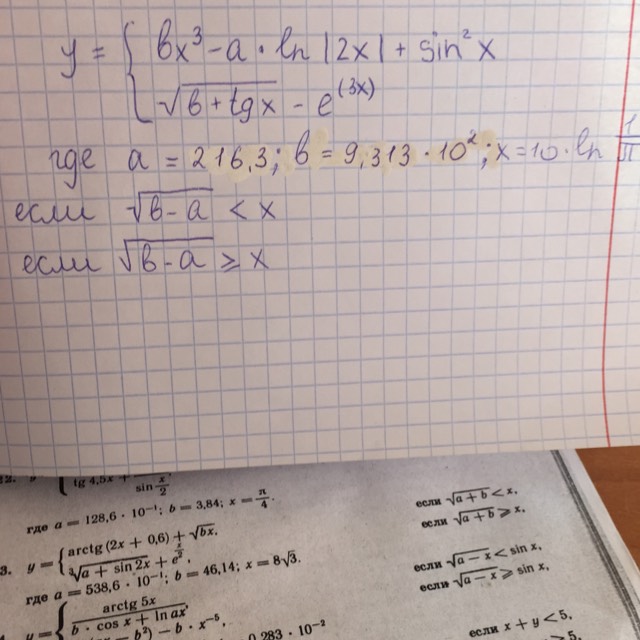 y = { bx³ - a · ln |2x| + sin² x
√(b + tg x) - e^(3x)
где a = 216,3; b = 9,313 · 10²; x = 10 · ln 1/π
если √(b - a) < x
если √(b - a) ⩾ x
tg 4,5x
sin x/2
где a = 128,6 · 10⁻¹; b = 3,84; x = π/4.
если √(a + b) < x,
если √(a + b) ⩾ x.
3. y = { arctg (2x + 0,6) + √(bx),
√(a + sin 2x) +
где a = 538,6 · 10⁻¹; b = 46,14; x = 8√3.
если √(a - x) < sin x,
если √(a - x) ⩾ sin x.
y = { arctg 5x / b · cos x + ln ax
если x + y < 5,
- b²) - b · x⁻⁵,
0,283 · 10⁻²